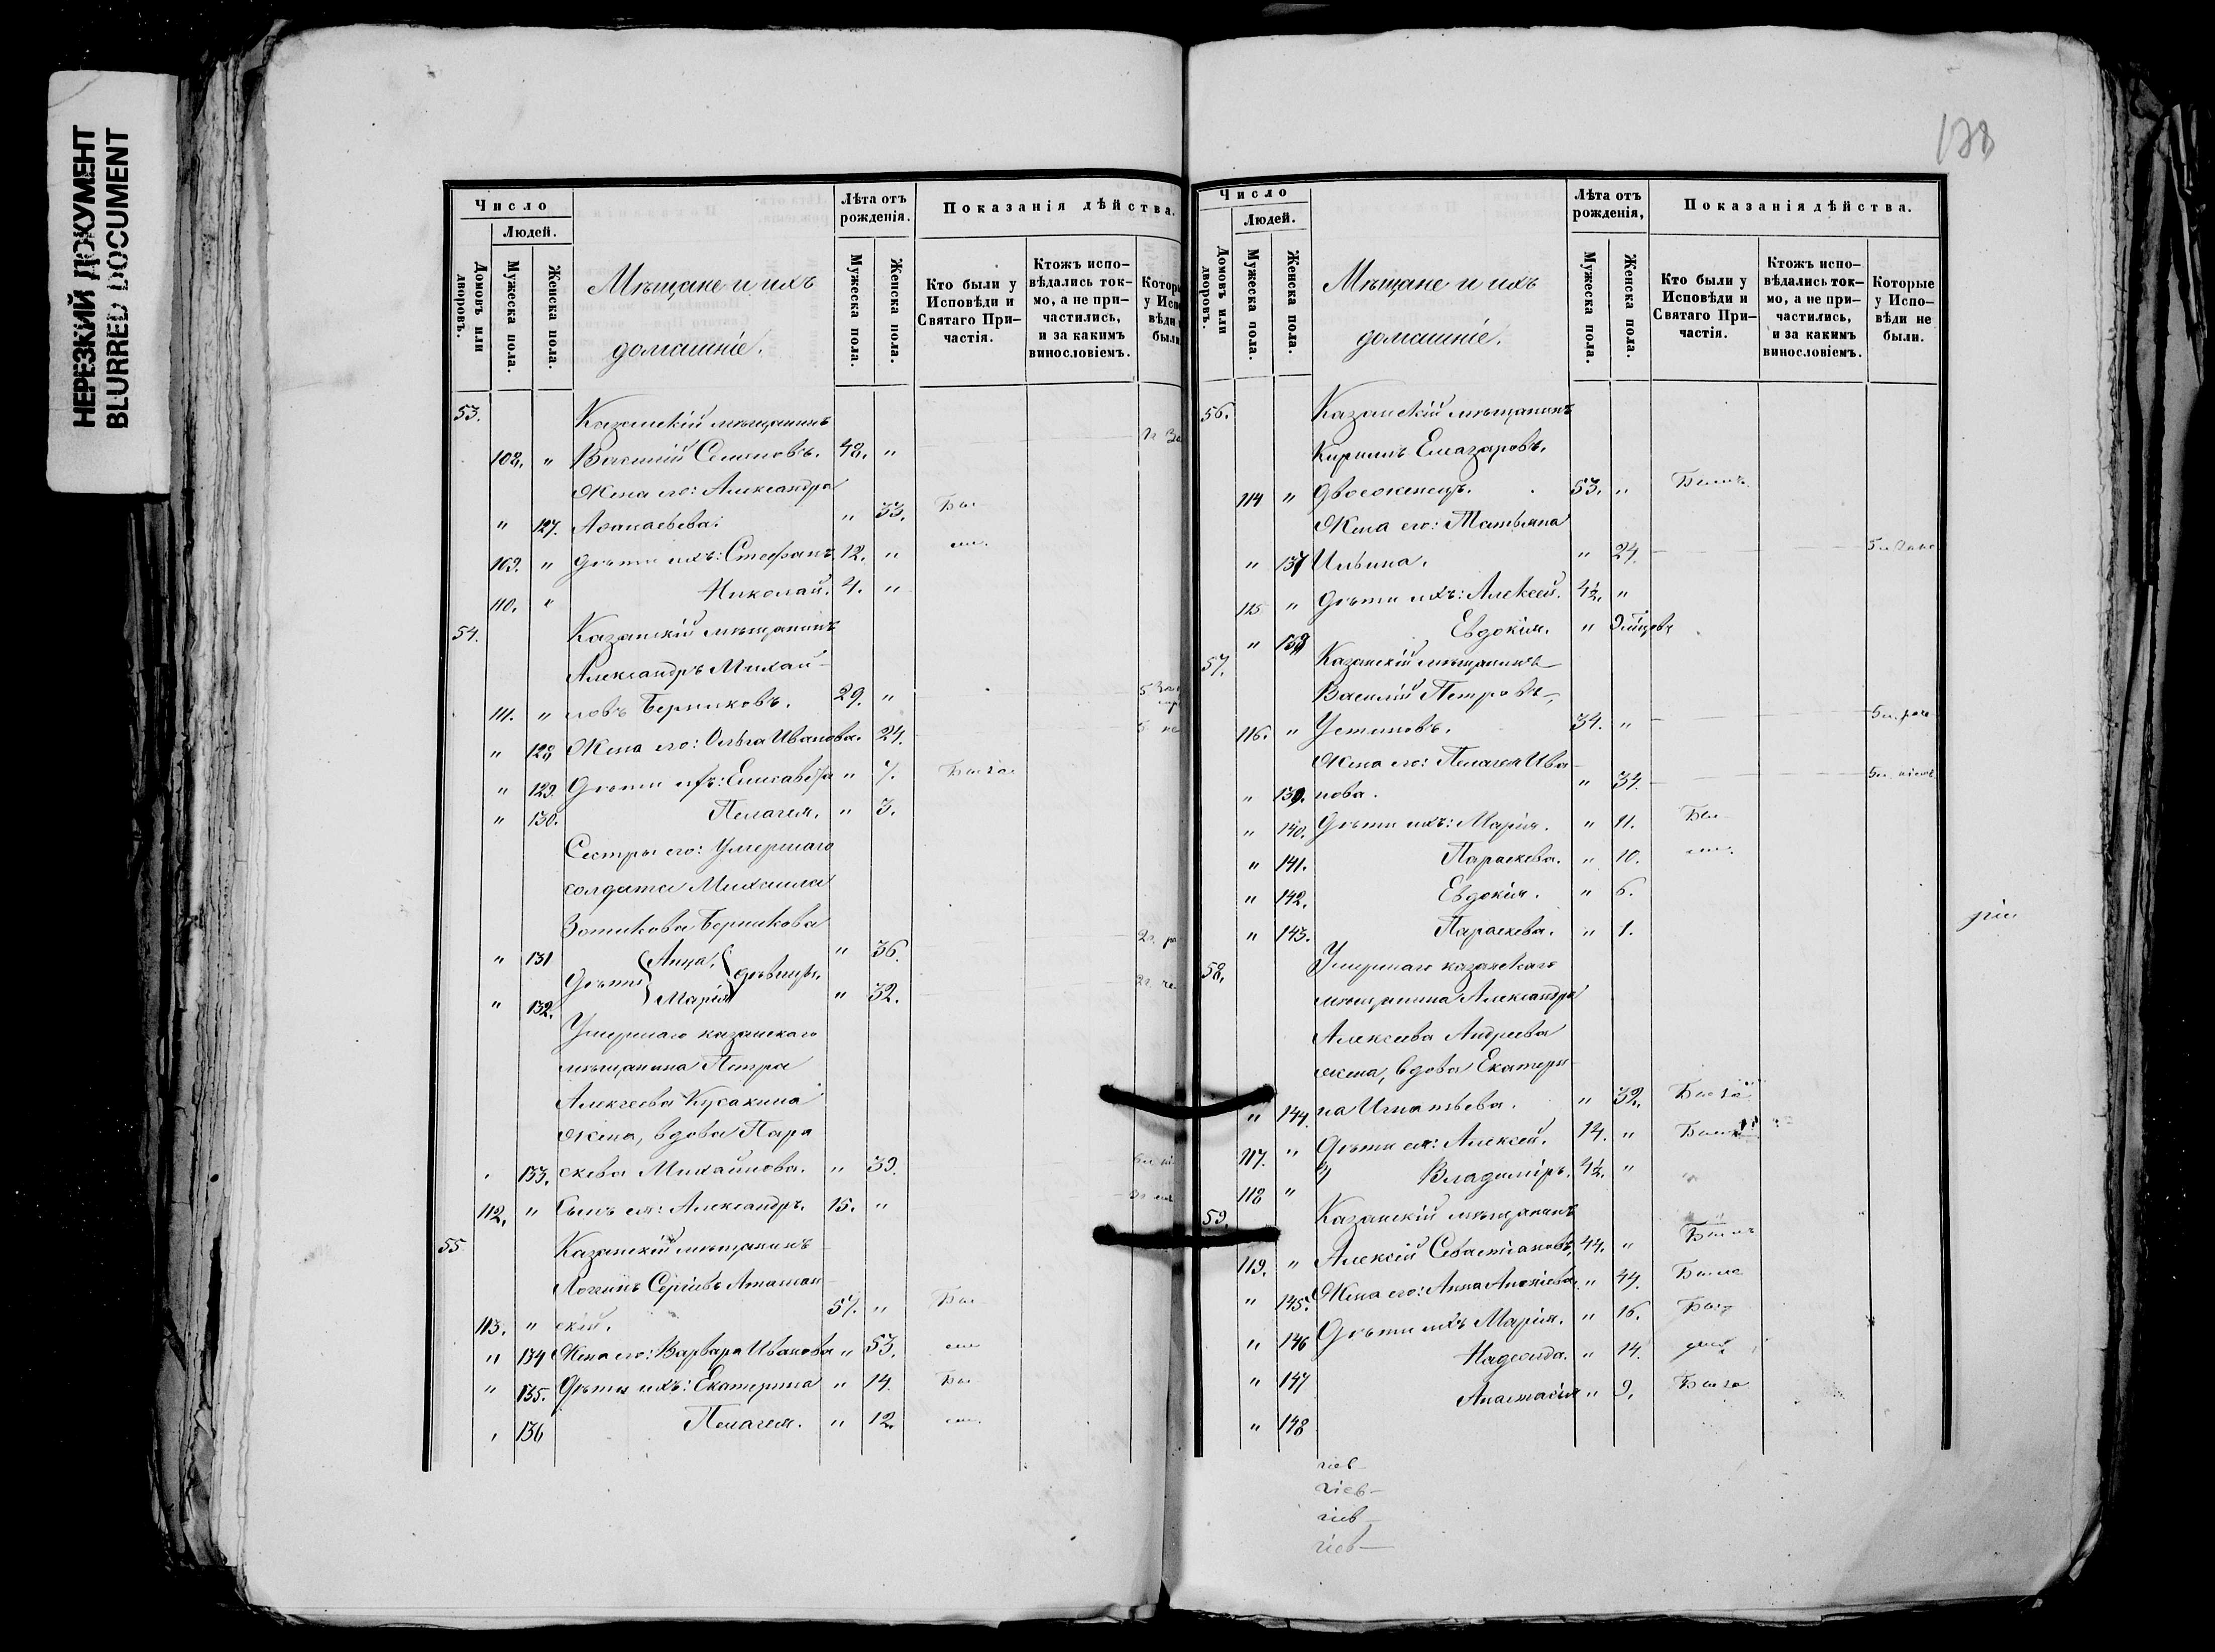 НЕРЕЗКИЙ ДОКУМЕНТ
BLURRED DOCUMENT
Число
Людей.
Домовъ или дворовъ.
Мужеска пола.
Женска пола.
Мѣщане и ихъ
домашніе.
Лѣта отъ рожденія.
Мужеска пола.
Женска пола.
Показанія дѣйства.
Кто были у Исповѣди и Святаго Причастія.
Ктожъ исповѣдались токмо, а не причастились, и за какимъ винословіемъ.
53. Казанскій мѣщанинъ
108. " Василій Семеновъ. 48. "
Жена его: Александра
" 127. Аѳанасьева. " 33. Бы-
109. " Дѣти ихъ: Стефанъ. 12. " ли.
110. " Николай. 4. "
54. Казанскій мѣщанинъ
Александръ Михай-
111. " ловъ Берниковъ. 29. "
" 128 Жена его: Ольга Иванова. 24.
" 129. Дѣти ихъ: Елисавета " 7. Была
" 130. Пелагея. " 3.
Сестры его: Умершаго
солдата Михаила
Зотикова Берникова
" 131 Дѣти Анна, дѣвицы. " 36.
" 132. Марія " 32.
Умершаго казанскаго
мѣщанина Петра
Алексѣева Кусакина
жена, вдова Пара
" 133. скева Михайлова. " 39.
112. " Сынъ ея: Александръ. 15. "
55 Казанскій мѣщанинъ
Логинъ Сергіевъ Атаман-
113. " скій. 57. " Бы
" 134 Жена его: Варвара Иванова " 53. ли
" 135. Дѣти ихъ: Екатерина " 14. Бы
" 136 Пелагея. " 12. ли.
138
Число
Людей.
Домовъ или дворовъ.
Мужеска пола.
Женска пола.
Мѣщане и ихъ
домашніе.
Лѣта отъ рожденія,
Мужеска пола.
Женска пола.
Показанія дѣйства.
Кто были у Исповѣди и Святаго Причастія.
Ктожъ исповѣдались токмо, а не причастились, и за какимъ винословіемъ.
Которые у Исповѣди не были.
56. Казанскій мѣщанинъ
Кирилъ Елиазаровъ,
114 " двоеженецъ. 53. " Былъ
Жена его: Татьяна
" 137 Ильина. " 24.
115 " Дѣти ихъ: Алексей. 4½. "
" 138 Евдокія. "
57. Казанскій мѣщанинъ
Василій Петровъ
116. " Устиновъ. 34. "
Жена его: Пелагея Ива-
" 139. нова. " 34.
" 140. Дѣти ихъ: Марія. " 11. Бы
" 141. Параскева. " 10. ли.
" 142. Евдокія. " 6.
" 143. Параскева. " 1.
58. Умершаго казанскаго
мѣщанина Александра
Алексѣева Андреева
жена, вдова Екатери-
" 144. на Игнатьева. " 32. Была
117. " Дѣти ея: Алексей. 14. " Былъ
118 " Владиміръ. 4½. "
59. Казанскій мѣщанинъ
119. " Алексій Севастіановъ. 44. " Былъ
" 145. Жена его: Анна " 44. Была
" 146 Дѣти ихъ Марія. " 16.
" 147 Надежда. " 14.
" 148 Анастасія " 9. Была
гіев-
гіев-
гіев-
гіев-